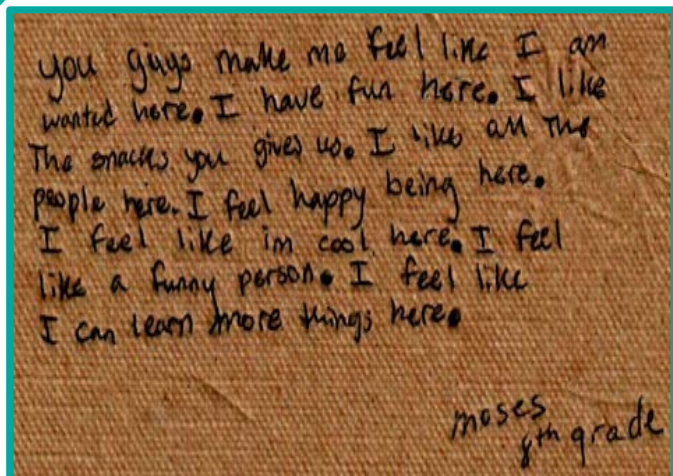 you guys make me feel like I am
wanted here. I have fun here. I like
The snacks you gives us. I like all the
people here. I feel happy being here.
I feel like im cool here. I feel
like a funny person. I feel like
I can learn more things here.
moses
8th grade